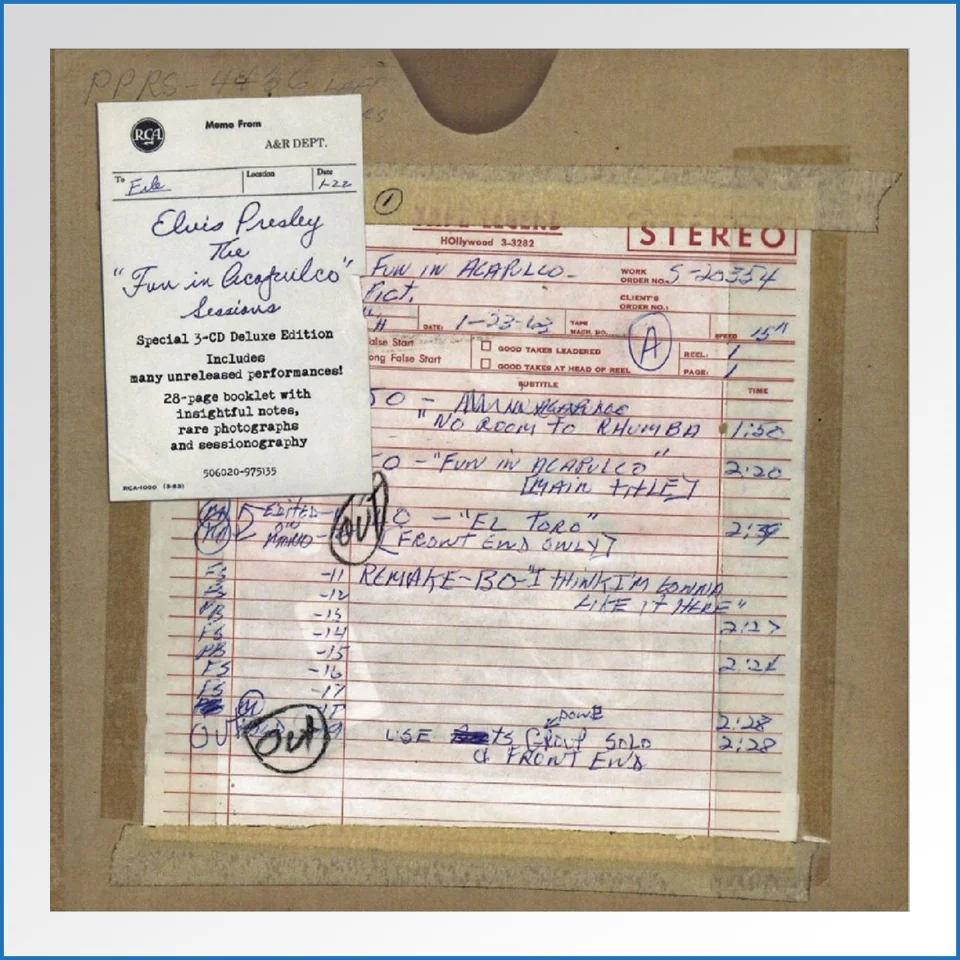 PPRS-4436
RCA
Memo From
A&R DEPT.
To File
Location
Date 1-22
Elvis Presley
The
"Fun in Acapulco"
Sessions
Special 3-CD Deluxe Edition
Includes
many unreleased performances!
28-page booklet with
insightful notes,
rare photographs
and sessionography
506020-975135
RCA-1000 (3-63)
1
TAPE LEGEND
HOllywood 3-3282
STEREO
FUN IN ACAPULCO-
PICT.
WORK ORDER NO. S-20354
CLIENT'S ORDER NO.:
DATE: 1-23-63
TAPE MACH. NO.
A
SPEED 15"
alse Start
ong False Start
GOOD TAKES LEADERED
GOOD TAKES AT HEAD OF REEL
REEL: 1
PAGE: 1
SUBTITLE
TIME
"NO ROOM TO RHUMBA 1:50
O - "FUN IN ACAPULCO" 2:20
[MAIN TITLE]
EDITED-
OUT
O - "EL TORO"
MONO-
[FRONT END ONLY]
FS -11 REMAKE-BO-"I THINK I'M GONNA
FS -12 LIKE IT HERE"
PB -13
FS -14 2:27
PB -15
FS -16
FS -17
M
DOWB
2:28
OUT
OUT
USE GROUP SOLO 2:28
& FRONT END